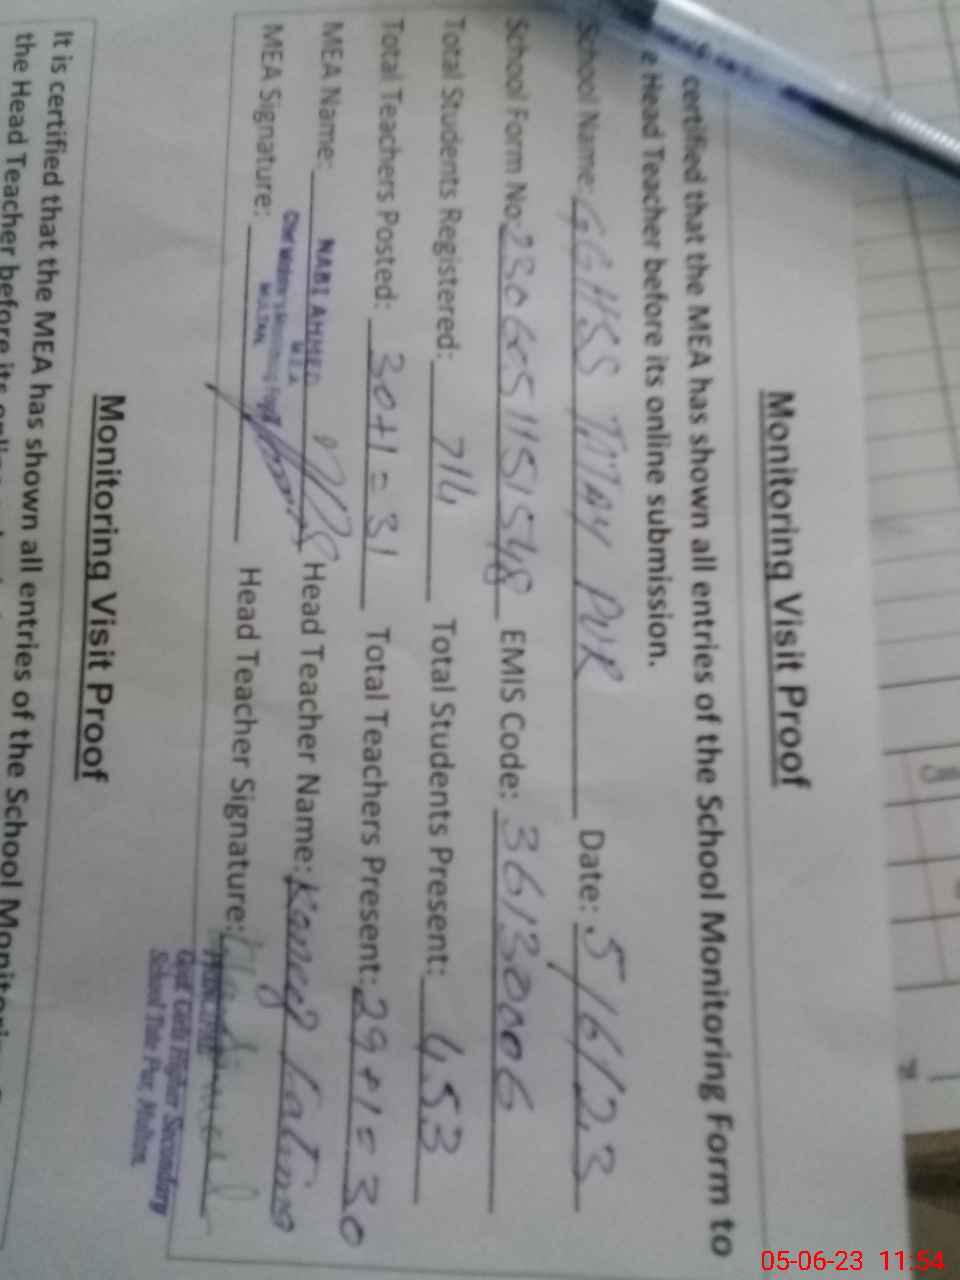 Monitoring Visit Proof
certified that the MEA has shown all entries of the School Monitoring Form to
e Head Teacher before its online submission.
School Name: GGHSS TATAY PUR Date: 5/6/23
School Form No: 230605115151548 EMIS Code: 36130006
Total Students Registered: 714 Total Students Present: 453
Total Teachers Posted: 30+1=31 Total Teachers Present: 29+1=30
MEA Name: NABI AHMED Head Teacher Name: Kaneez Fatima
MEA
MEA Signature: Head Teacher Signature:
MULTAN
PRINCIPAL
Govt. Girls Higher Secondary
School Tate Pur, Multan.
Monitoring Visit Proof
It is certified that the MEA has shown all entries of the School Monitoring
the Head Teacher before its
05-06-23 11:54